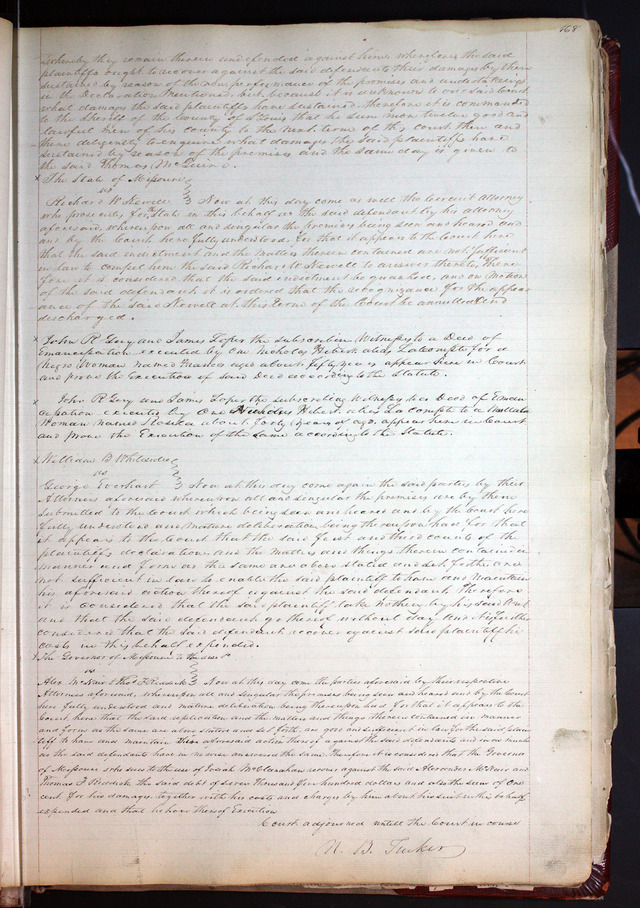 168
whereby they remain therein undefended against him wherefore the said
plaintiffs ought to recover against the said defendants their damages by them
sustained by reason of the non performance of the promises and undertakings
in the declaration mentioned but because it is unknown to the said Court
what damages the said plaintiffs have sustained. Therefore it is commanded
to the sheriff of the County of St Louis that he summon twelve good and
lawful men of his county to the next term of this court then and
there diligently to enquire what damages the said plaintiffs have
sustained by reason of the premises and the same day is given to
the said Thomas McGuire.
x The State of Missouri
vs
Richard W. Newell Now at this day come as well the Circuit Attorney
who prosecutes for the State in this behalf as the said defendant by his attorney
aforesaid, whereupon all and singular the premises being seen and heard and
and by the Court here fully understood. For that it appears to the Court here
that the said indictment and the matters therein contained are not sufficient
in law to compel him the said Richard W. Newell to answer thereto, There
fore it is considered that the said indictment be quashed, and on motion
of the said defendant it is ordered that the recognizance for the appear
ance of the said Newell at this term of the Court be annulled and
discharged.
x John R Guy and James Loper the subscribing Witnesses to a Deed of
Emancipation executed by One Nicholas Hebert alias Lacompte for a
Negro Woman named aged about fifty years appear here in Court
and prove the Execution of said Deed according to the Statute.
John R Guy and James Loper the subscribing Witnesses to a Deed of Eman
cipation executed by One Nicholas Hebert alias La Compte to a Mulatto
Woman named about forty years of age. appear here in Court
and prove the Execution of the same according to the Statute.
x William B Whiteside
vs
George Everhart Now at this day come again the said parties by their
Attornies aforesaid whereupon all and singular the premises are by them
submitted to the Court which being seen and heard and by the Court here
fully understood and mature deliberation being thereupon had for that
it appears to the Court that the said first and third counts of the
plaintiffs declaration and the matters and things therein contained in
manner and form as the same are above stated and set forth are
not sufficient in law to enable the said plaintiff to have and maintain
his aforesaid action thereof against the said defendant. Therefore
it is considered that the said plaintiff take nothing by his said Writ
and that the said defendant go thereof without day and it is further
considered that the said defendant recover against said plaintiff his
costs in this behalf expended.
The Governor of Missouri to the use &c
vs
Alex McNair & Thos F. Riddick Now at this day come the parties aforesaid by their respective
Attornies aforesaid, whereupon all and singular the premises being seen and heard and by the Court
here fully understood and mature deliberation being thereupon had. For that it appears to the
Court here that the said replication and the matters and things therein contained in manner
and form as the same are above stated and set forth, are good and sufficient in law for the said plain
tiff to have and maintain his aforesaid action thereof against the said defendants and inasmuch
as the said defendants have in no wise answered the same. Therefore it is considered that the Governor
of Missouri who sues to the use of Josiah McClanahan recover against the said Alexander McNair and
Thomas F. Riddick the said debt of seven Thousand five hundred dollars and also the sum of One
cent for his damages together with his costs and charges by him about his suit in this behalf
expended and that he have thereof Execution
Court adjourned untill the Court in course
N. B. Tucker